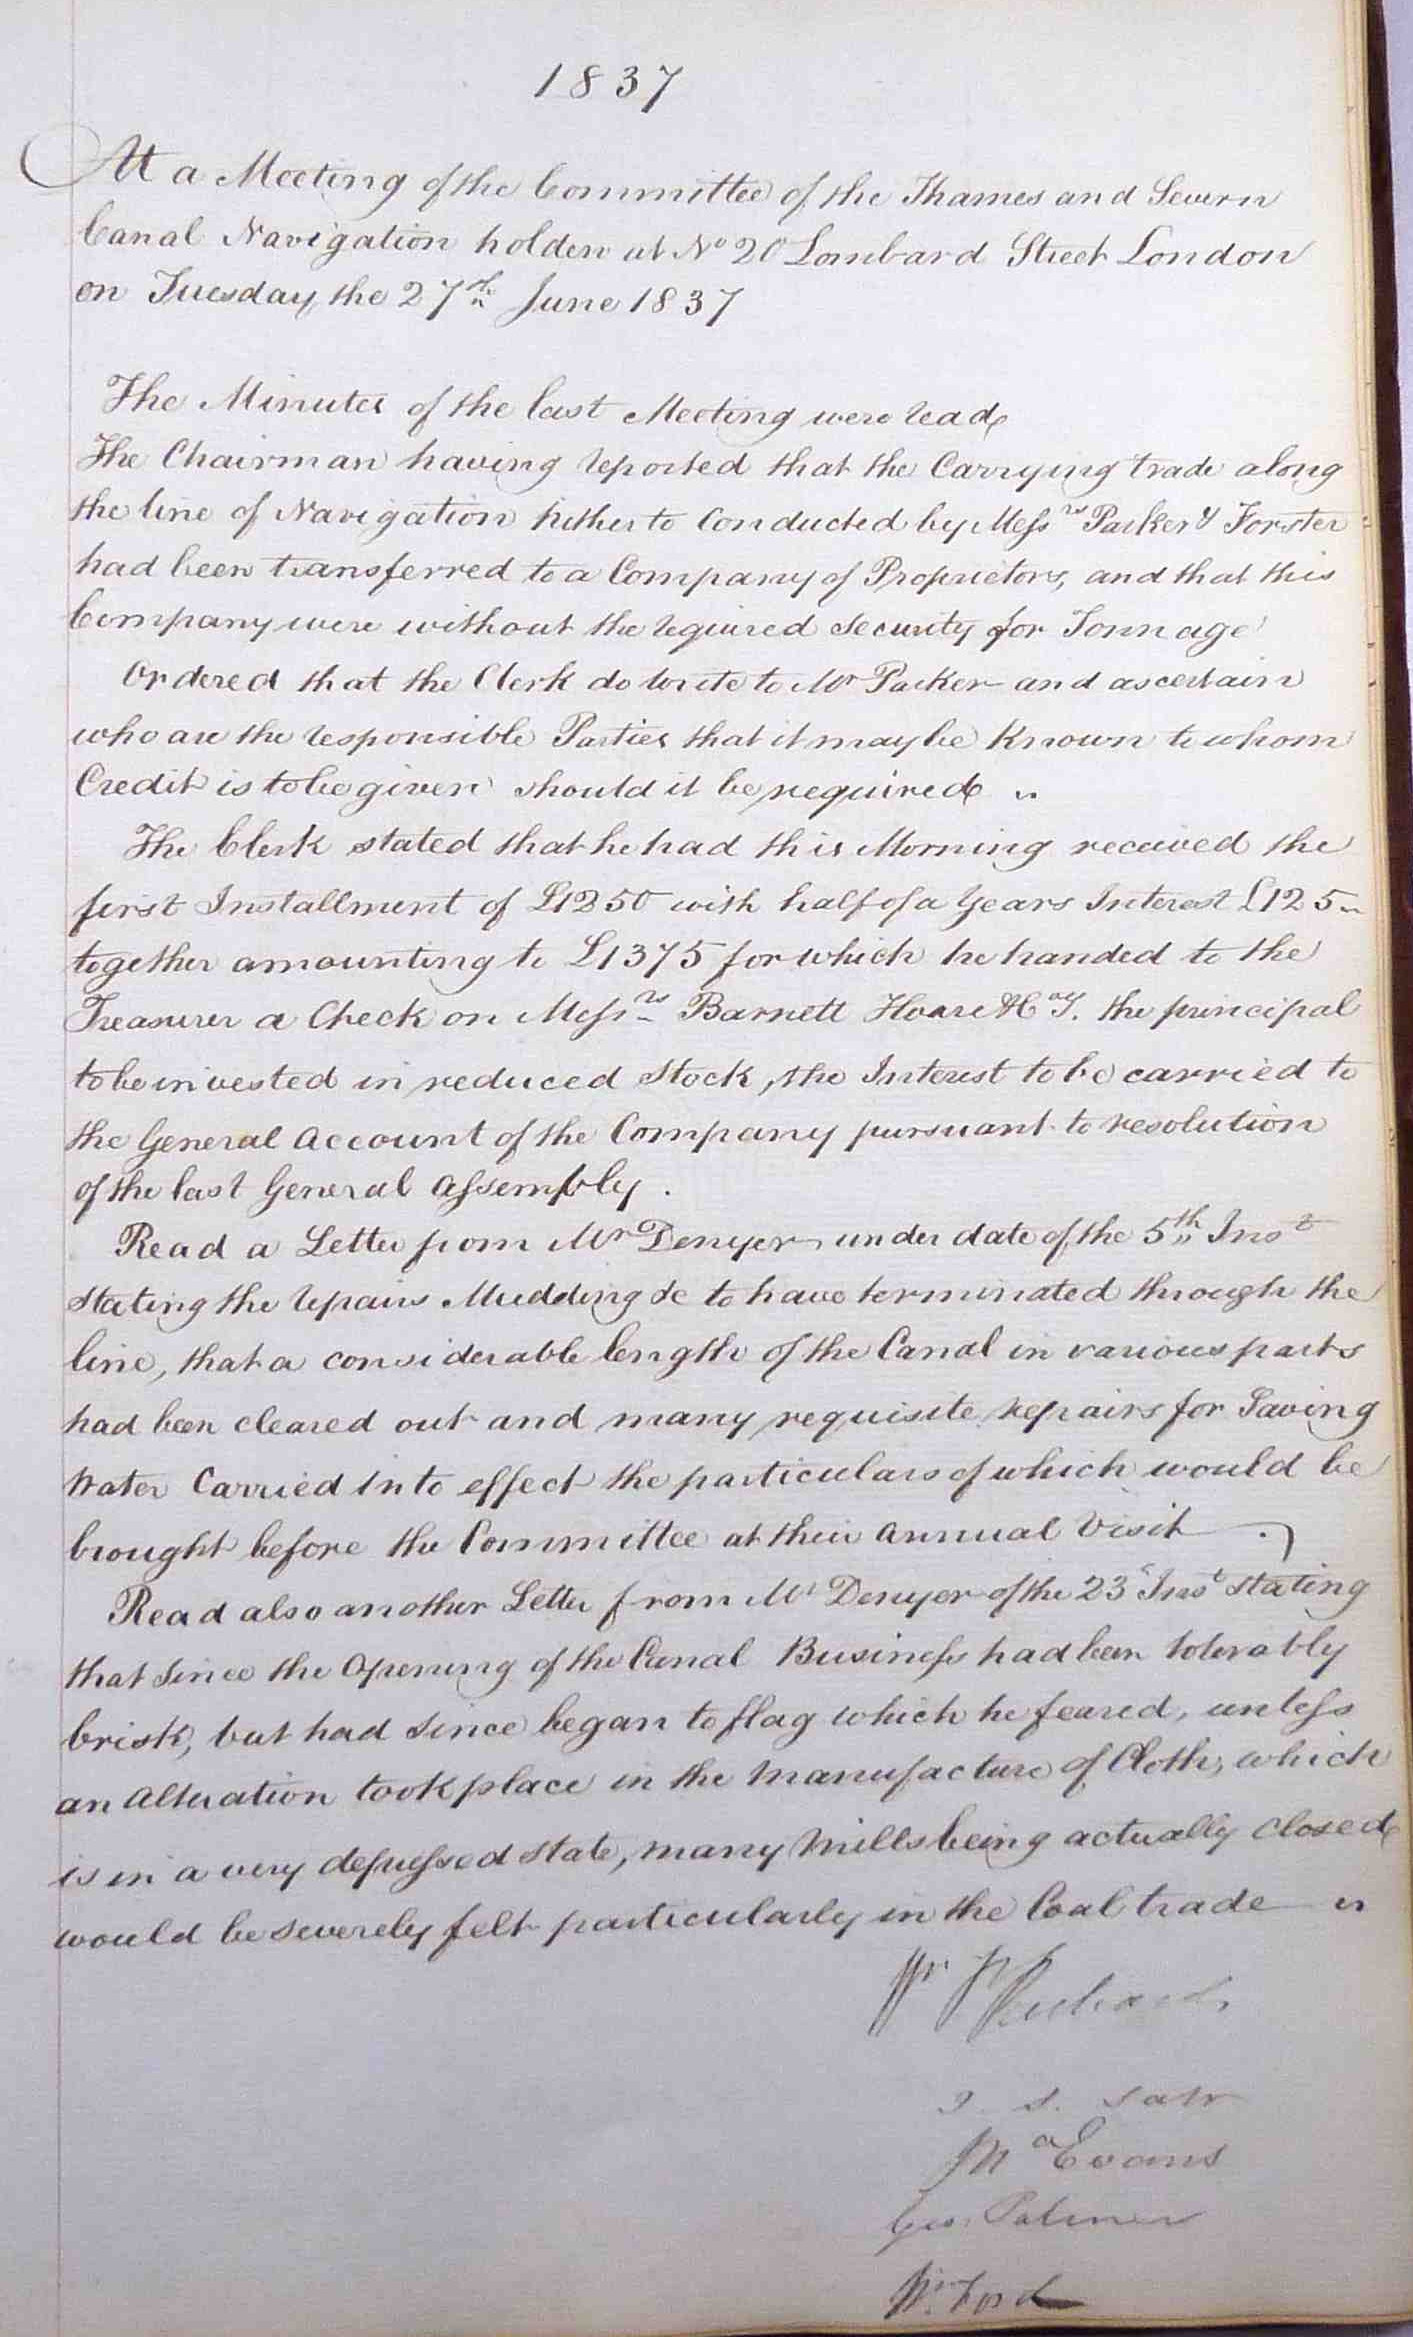 1837
At a Meeting of the Committee of the Thames and Severn
Canal Navigation holden at No 20 Lombard Street London
on Tuesday, the 27th June 1837
The Minutes of the last Meeting were read
The Chairman having reported that the Carrying trade along
the line of Navigation hitherto Conducted by Messrs Parker & Forster
had been transferred to a Company of Proprietors, and that this
Company were without the required Security for Tonnage
Ordered that the Clerk do write to Mr Parker and ascertain
who are the responsible Parties that it may be Known to whom
Credit is to be given should it be required
The Clerk stated that he had this Morning received the
first Installment of £1250 with half of a Years Interest £125
together amounting to £1375 for which he handed to the
Treasurer a Check on Messrs Barnett Hoare & Coy. the principal
to be invested in reduced Stock, the Interest to be carried to
the General Account of the Company pursuant to resolution
of the last General Assembly.
Read a Letter from Mr Denyer under date of the 5th Inst
Stating the repairs Mudding &c to have terminated through the
line, that a considerable length of the Canal in various parts
had been cleared out and many requisite repairs for Saving
Water Carried into effect the particulars of which would be
brought before the Committee at their Annual Visit.
Read also another Letter from Mr Denyer of the 23d Inst Stating
that Since the Opening of the Canal Business had been tolerably
brisk, but had Since began to flag which he feared, unless
an Alteration took place in the Manufacture of Cloth, which
is in a very depressed state, many Mills being actually closed
would be severely felt particularly in the Coal trade
Evans
Geo. Palmer
Wm. Ford